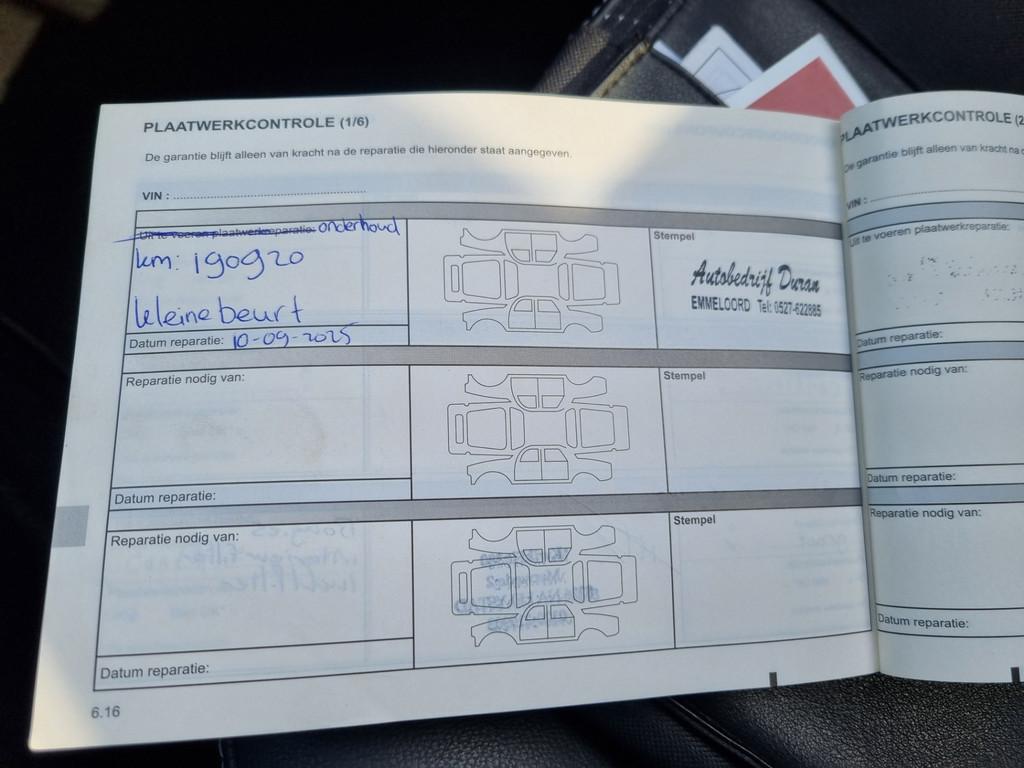 PLAATWERKCONTROLE (1/6)
De garantie blijft alleen van kracht na de reparatie die hieronder staat aangegeven.
VIN :
Uit te voeren plaatwerkreparatie: onderhoud
km: 190920
kleine beurt
Datum reparatie: 10-09-2025
Stempel
Autobedrijf Duran
EMMELOORD Tel: 0527-622885
Reparatie nodig van:
Stempel
Datum reparatie:
Reparatie nodig van:
Stempel
Datum reparatie:
6.16
PLAATWERKCONTROLE (2
De garantie blijft alleen van kracht na
VIN :
Uit te voeren plaatwerkreparatie:
Datum reparatie:
Reparatie nodig van:
Datum reparatie:
Reparatie nodig van:
Datum reparatie: